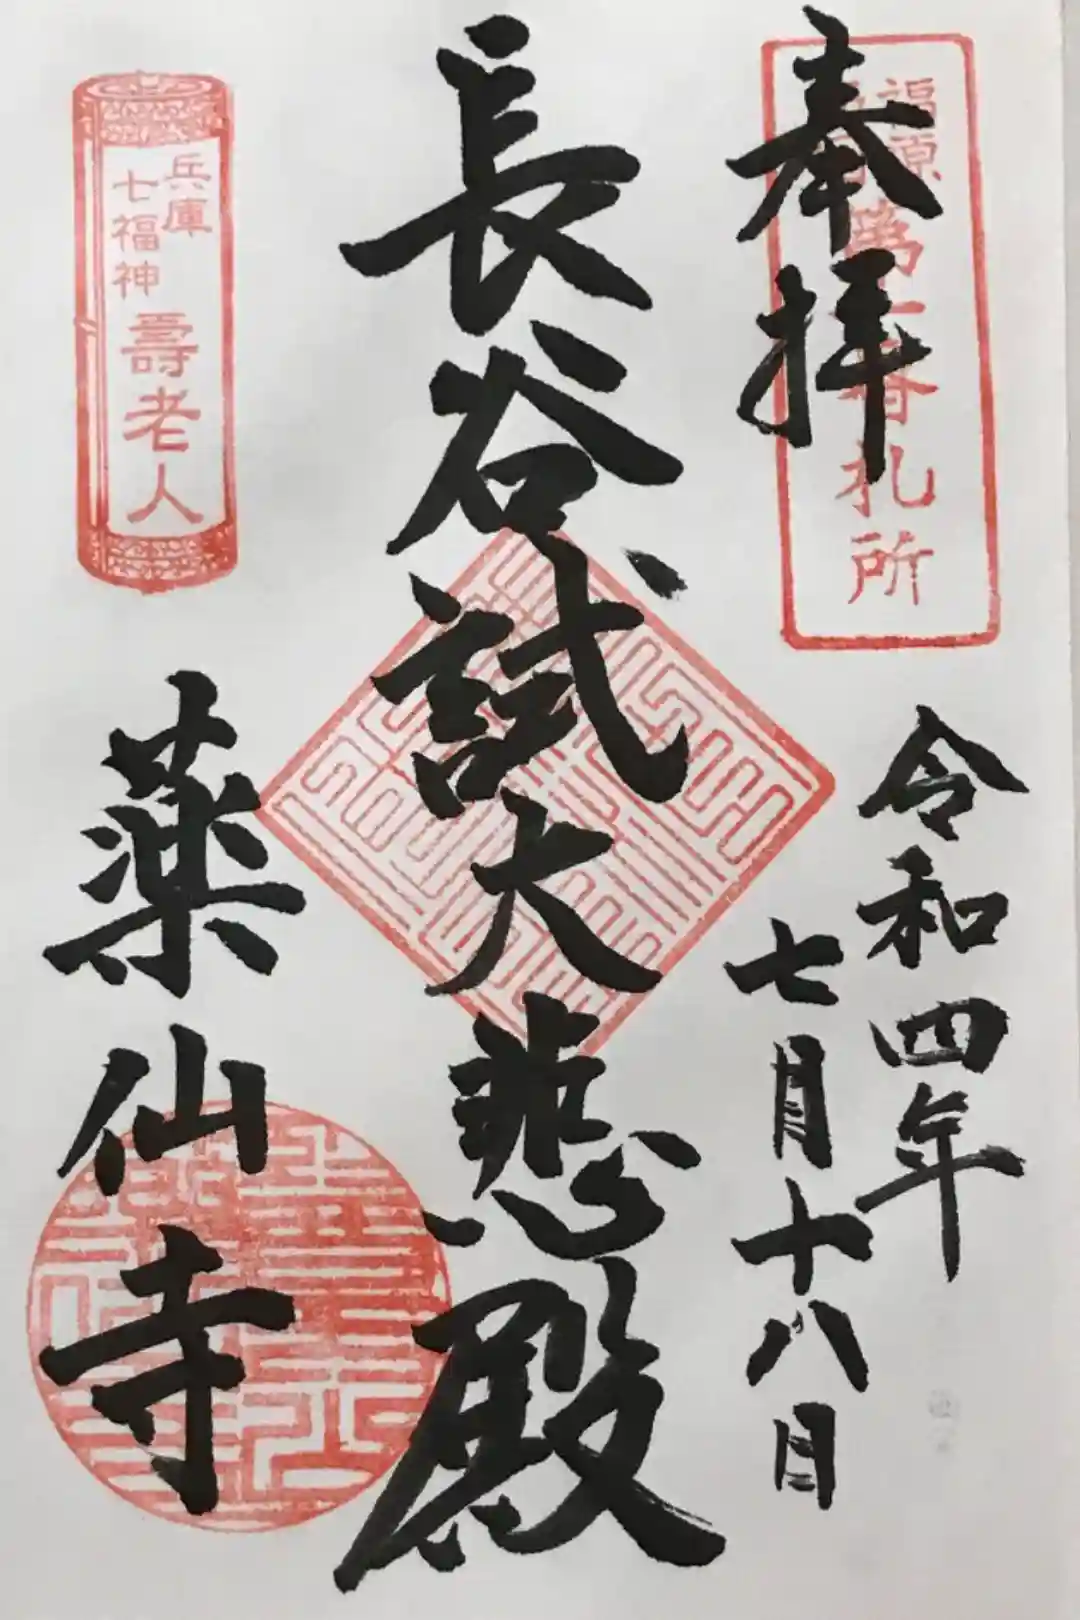 奉拝
福原
番札所
令和四年
七月十八日
長谷試大悲殿
兵庫
七福神
壽老人
薬仙寺